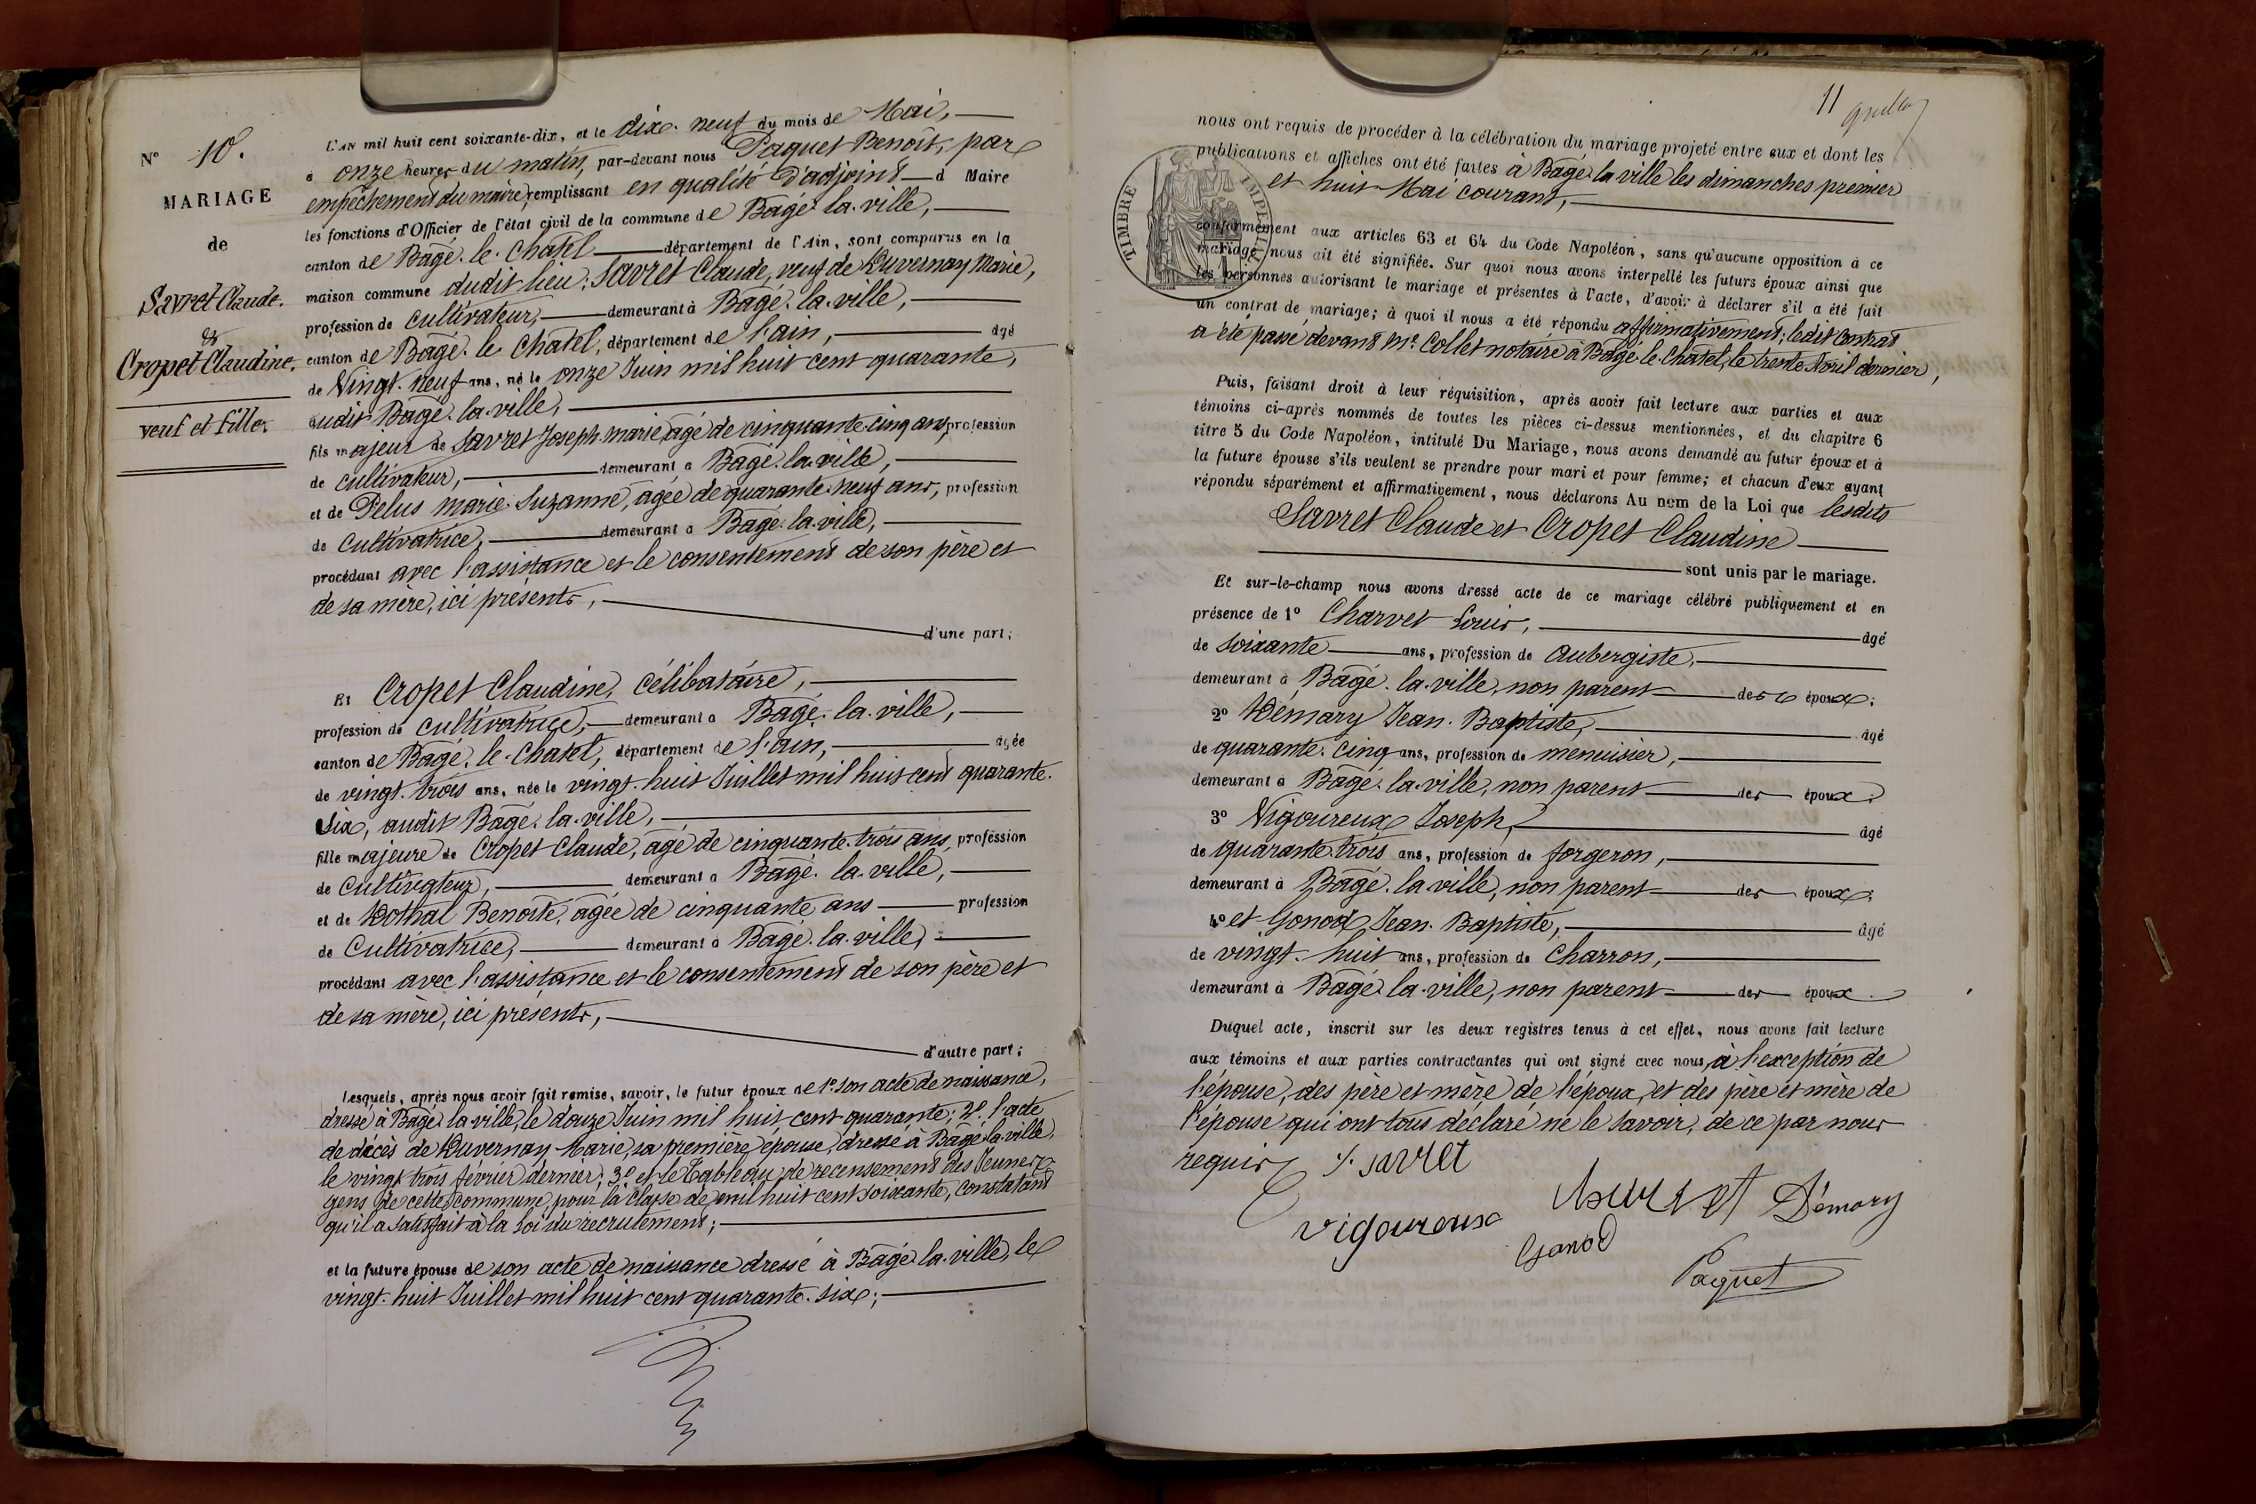 N° 10.
MARIAGE
de
Savret Claude.
&
Cropet Claudine.
veuf et fille.
L'AN mil huit cent soixante-dix, et le dix-neuf du mois de Mai,
à onze heures du matin, par-devant nous Paquet Benoît, par
empêchement du maire, remplissant en qualité d'adjoint d Maire
les fonctions d'Officier de l'état civil de la commune de Bâgé-la-ville,
canton de Bâgé-le-Chatel département de l'Ain, sont comparus en la
maison commune dudit lieu: Savret Claude, veuf de Duvernay Marie,
profession de cultivateur, demeurant à Bâgé-la-ville,
canton de Bâgé-le-Chatel, département de l'ain, âgé
de Vingt-neuf ans, né le onze Juin mil huit cent quarante,
audit Bâgé-la-ville,
fils majeur de Savret Joseph-Marie, âgé de cinquante-cinq ans, profession
de cultivateur, demeurant à Bâgé-la-ville,
et de Pelus Marie-Suzanne, âgée de quarante-neuf ans, profession
de cultivatrice, demeurant à Bâgé-la-ville,
procédant avec l'assistance et le consentement de son père et
de sa mère, ici présents,
d'une part;
Et Cropet Claudine, célibataire,
profession de cultivatrice, demeurant à Bâgé-la-ville,
canton de Bâgé-le-Chatel, département de l'ain, âgée
de vingt-trois ans, née le vingt-huit Juillet mil huit cent quarante-
six, audit Bâgé-la-ville,
fille majeure de Cropet Claude, âgé de cinquante-trois ans, profession
de cultivateur, demeurant à Bâgé-la-ville,
et de Dothal Benoîte, âgée de cinquante ans profession
de cultivatrice, demeurant à Bâgé-la-ville,
procédant avec l'assistance et le consentement de son père et
de sa mère, ici présents,
d'autre part;
Lesquels, après nous avoir fait remise, savoir, le futur époux de 1° son acte de naissance,
dressé à Bâgé-la-ville, le douze Juin mil huit cent quarante; 2° l'acte
de décès de Duvernay Marie, sa première épouse, dressé à Bâgé-la-ville,
le vingt-trois février dernier; 3° et le Tableau de recensement des Jeunes
gens de cette commune, pour la classe de mil huit cent soixante, constatant
qu'il a satisfait à la Loi du recrutement;
et la future épouse de son acte de naissance dressé à Bâgé-la-ville, le
vingt-huit Juillet mil huit cent quarante-six;
11
TIMBRE IMPERIAL
nous ont requis de procéder à la célébration du mariage projeté entre eux et dont les
publications et affiches ont été faites à Bâgé-la-ville les dimanches premier
et huit Mai courant,
conformément aux articles 63 et 64 du Code Napoléon, sans qu'aucune opposition à ce
mariage nous ait été signifiée. Sur quoi nous avons interpellé les futurs époux ainsi que
les personnes autorisant le mariage et présentes à l'acte, d'avoir à déclarer s'il a été fait
un contrat de mariage; à quoi il nous a été répondu affirmativement; ledit Contrat
a été passé devant Me Collet notaire à Bâgé-le-Chatel, le trente Avril dernier,
Puis, faisant droit à leur réquisition, après avoir fait lecture aux parties et aux
témoins ci-après nommés de toutes les pièces ci-dessus mentionnées, et du chapitre 6
titre 5 du Code Napoléon, intitulé Du Mariage, nous avons demandé au futur époux et à
la future épouse s'ils veulent se prendre pour mari et pour femme; et chacun d'eux ayant
répondu séparément et affirmativement, nous déclarons Au nom de la Loi que lesdits
Savret Claude et Cropet Claudine
sont unis par le mariage.
Et sur-le-champ nous avons dressé acte de ce mariage célébré publiquement et en
présence de 1° Charvet Louis, âgé
de soixante ans, profession de Aubergiste,
demeurant à Bâgé-la-ville, non parent des époux;
2° Démary Jean-Baptiste, âgé
de quarante-cinq ans, profession de menuisier,
demeurant à Bâgé-la-ville, non parent des époux;
3° Vigoureux Joseph, âgé
de quarante-trois ans, profession de forgeron,
demeurant à Bâgé-la-ville, non parent des époux;
4° et Gonod Jean-Baptiste, âgé
de vingt-huit ans, profession de Charron,
demeurant à Bâgé-la-ville, non parent des époux.
Duquel acte, inscrit sur les deux registres tenus à cet effet, nous avons fait lecture
aux témoins et aux parties contractantes qui ont signé avec nous, à l'exception de
l'épouse, des père et mère de l'époux, et des père et mère de
l'épouse qui ont tous déclaré ne le savoir, de ce par nous
requis
savret
vigoureux
Charvet
Démary
Gonod
Paquet